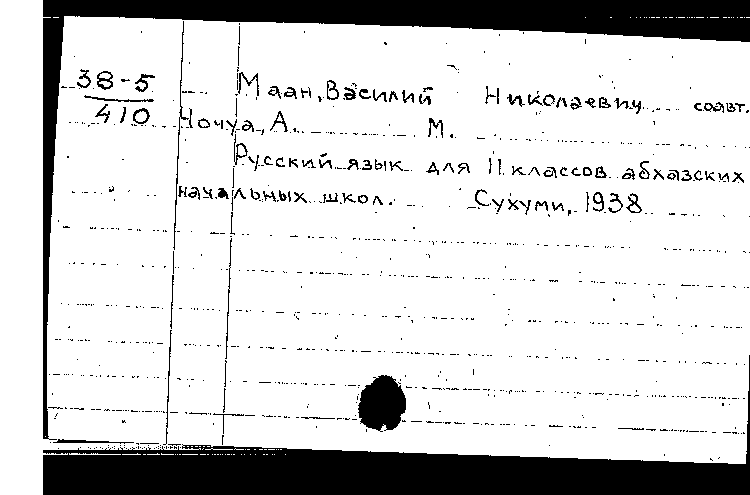 38-5
410
Маан, Василий Николаевич соавт.
Чочуа, А. М.
Русский язык для II классов абхазских
начальных школ. Сухуми, 1938